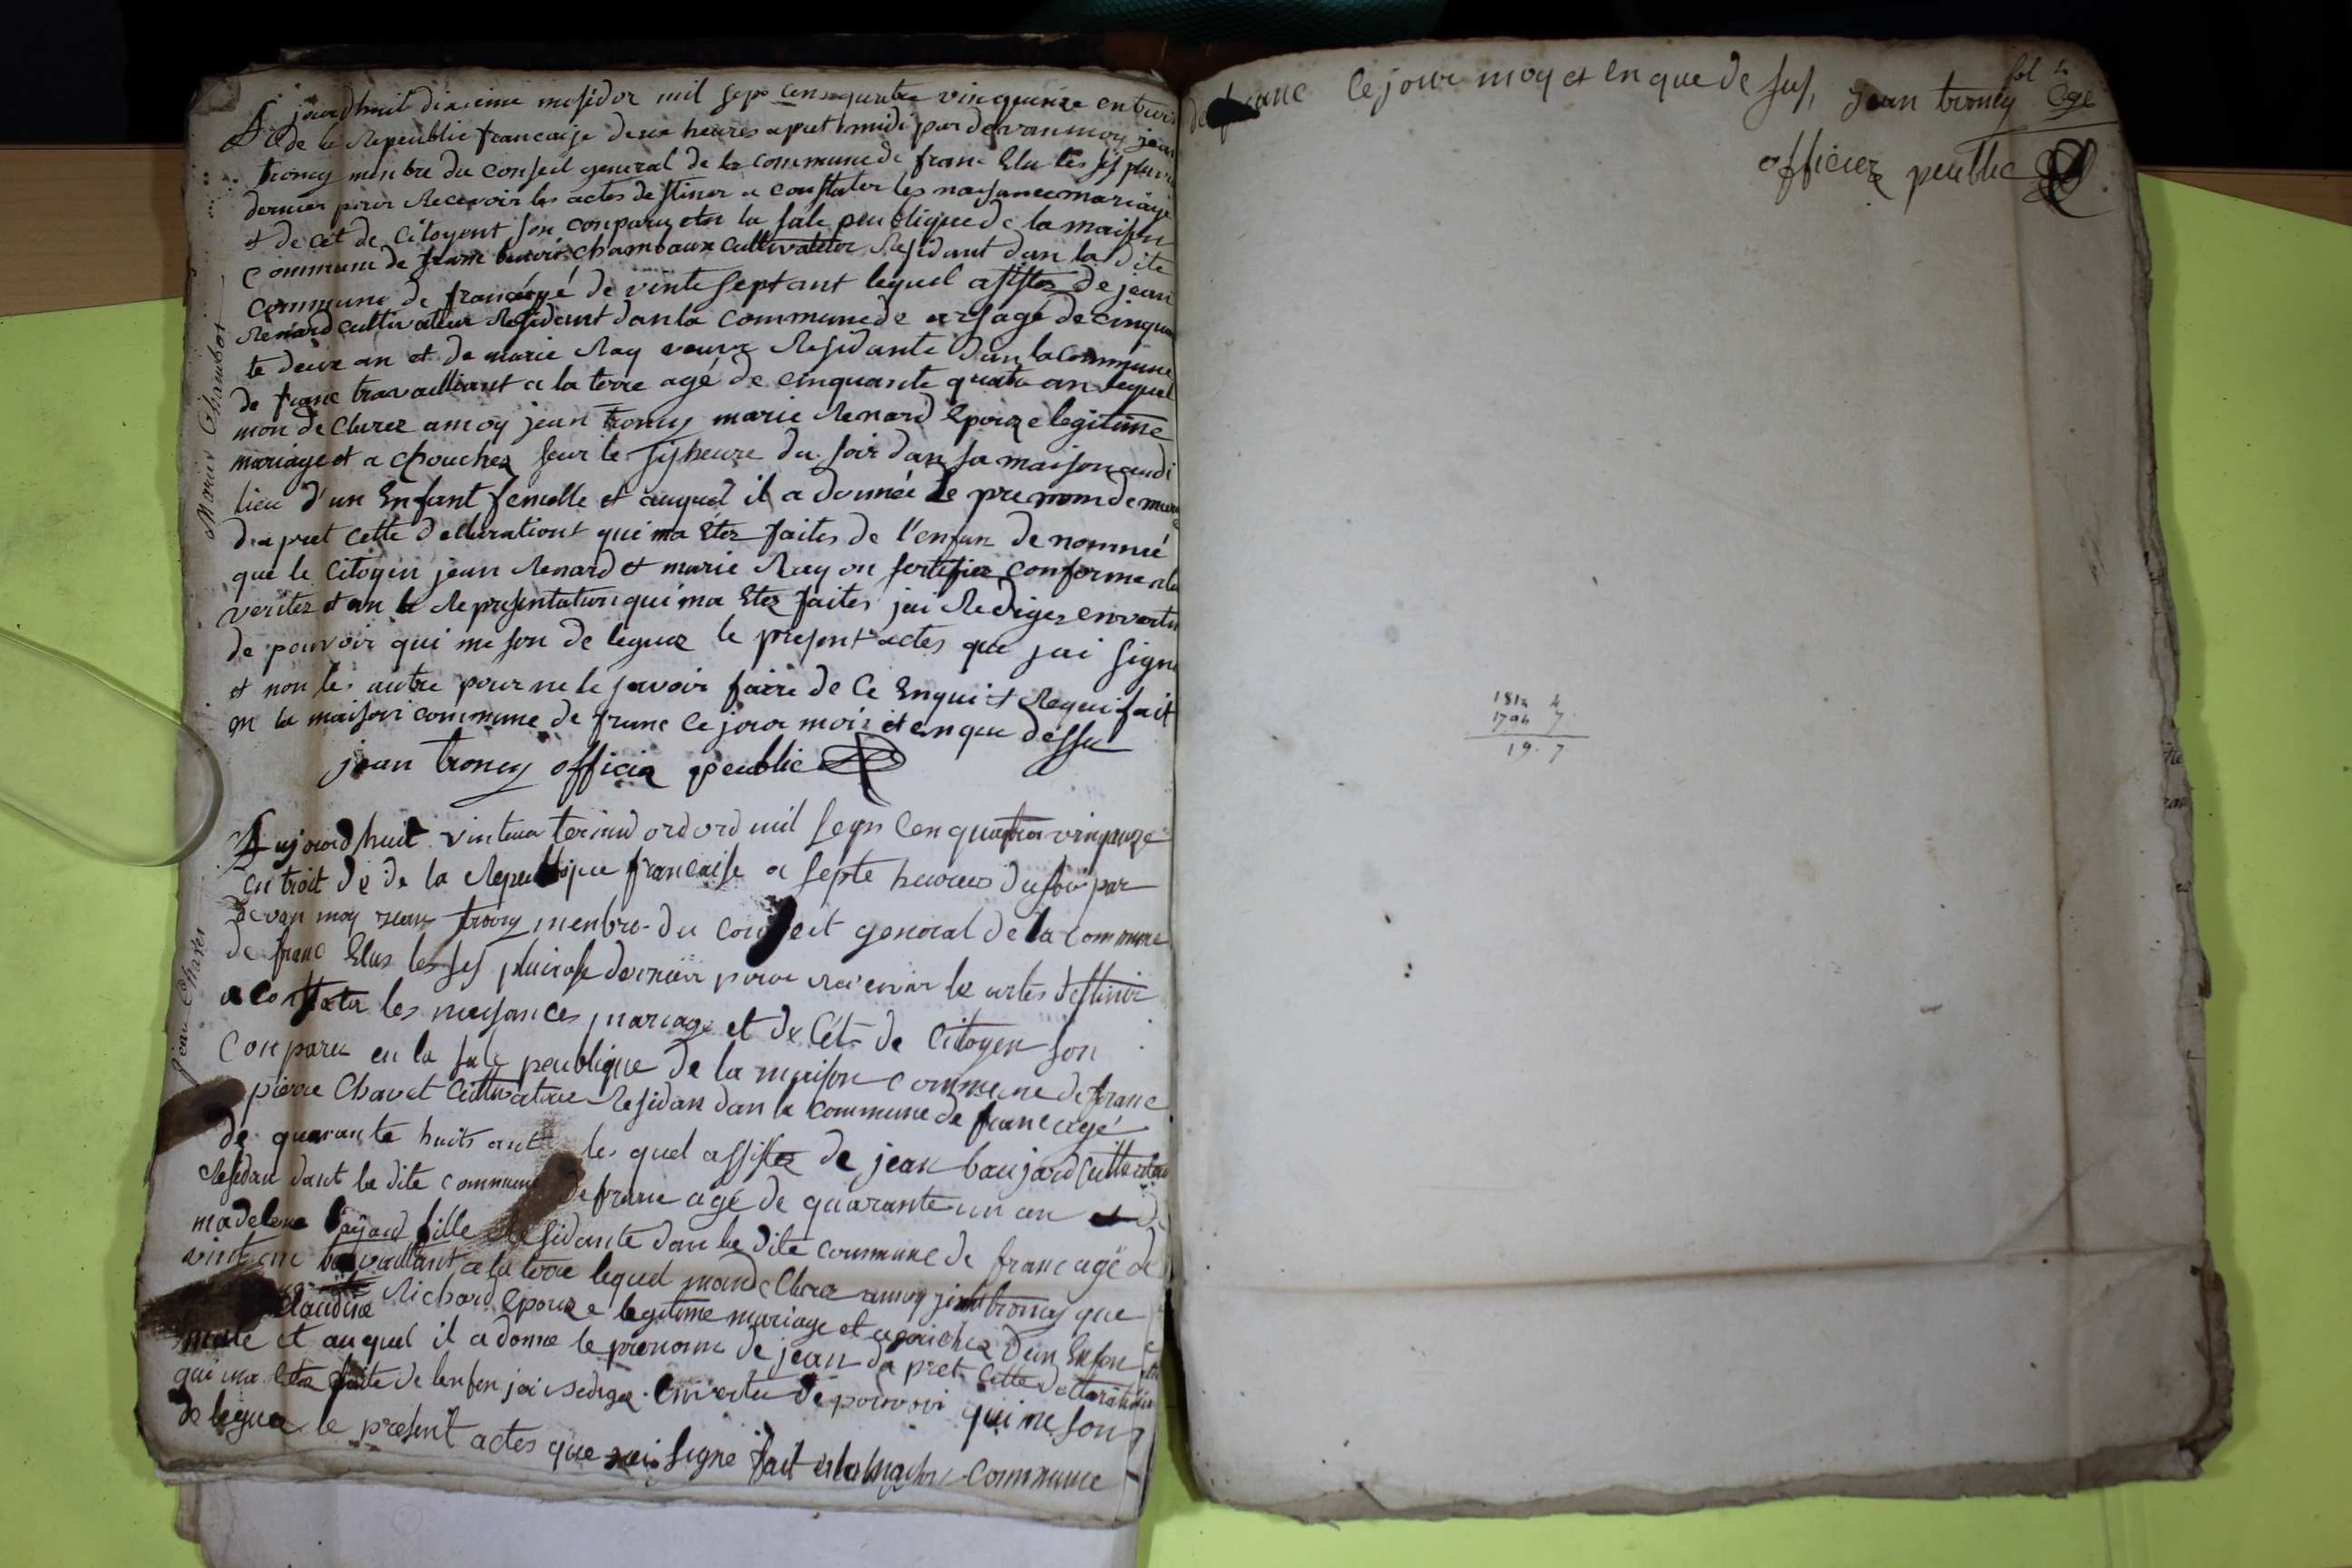 jourdhuit dixieme mesidor mil sept cens quatre vinquinze en trois
de la Republic francaise deux heures apret midi par devan moy jean
troncy menbre du conseil general de la commune de franc Elu les sis pluvi
dernier pour Recevoir les actes destiner a constater les naisance mariage
et de cet de Citoyent son conparu en la sale peublique de la maison
commune de franc benoit chambaux cultivateur Residant dan la dite
commune de franc agé de vinte sept ant lequel assistez de jean
Renard cultivateur Residant dan la commune de ars agé de cinquan
te deux an et de marie Ray veuve Residante dan la commune
de franc travailliant a la terre agé de cinquante quatre an lequel
mon de Clurez amoy jean troncy marie Renard Epouze legitime
mariage et a chouchez seur le sis heure du soir dan sa maison audi
lieu d'un Enfant femelle et auquel il a donnée le prenom de marie
da pret cette declarationt qui ma Etez faites de l'enfan de nommé
que le Citoyen jean Renard et marie Ray on sertifiez conforme a la
veritez et an la Representation qui ma Etez faites jai Rediger envertu
de pouvoir qui me son de leguez le present actes que jai signe
et non les autre pour ne le savoir faire de Ce Enqui et Requi fait
en la maison commune de franc Ce jour mois et en que dessu
jean troncy officier peublic
Marie Chambot
Aujourdhuit vinteua termidord ord mil sept cen quatre vinquinze
en troit de de la Republique francaise a septe heures du soir par
devan moy jean troncy menbre du conseit general de la Commune
de franc Elus les sis pluviose dernier pour recevoir les actes destinér
a constater les naisances mariage et de Cét de Citoyen son
Conparu en la sale peublique de la maison commune de franc
pierre Chavet Cultivateur Residan dan la commune de franc agé
de quarante huits ant lequel assistez de jean baujard Cultivateur
Residan dant la dite commune de franc agé de quarante un an et de
madelene bajard fille Residante dan la dite commune de franc agé de
vint an travaillant a la terre lequel mon de Clurez amoy jean troncy que
claudine Richard Epouze legitime mariage et acouchez d'un Enfan
male et auquel il a donne le prenom de jean da pret Cette declaration
qui ma Etez faite de lenfen jai rediger en vertu de pouvoir qui me son
de leguez le present actes que jai signe fait a la maison Commune
Jean Chavet
de franc Ce jour moy et en que de sus, jean troncy
officier peublic
1812 4
1794 7
19. 7